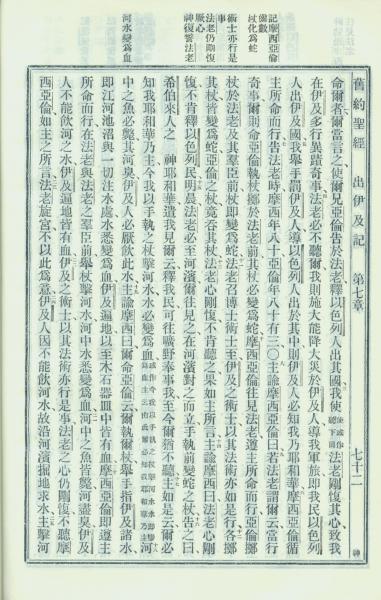 記摩西亞倫
齒數
杖化為蛇
術士亦行是
事
法老仍剛愎
神復警法老
河水變為血
舊約聖經 出伊及記 第七章 七十二 神
命爾爾當言之使爾兄亞倫告於法老釋以色列人出其國我使法老剛愎其心致我
在伊及多行異蹟奇事法老必不聽爾我則施大能降大災於伊及人導我軍旅即我民以色列
人出伊及國我舉手罰伊及人導以色列人出於其中則伊及人必知我乃耶和華摩西亞倫循
主所命而行告法老時摩西年八十亞倫年八十有三〇主諭摩西亞倫曰若法老謂爾云當行
奇事爾則命亞倫執杖擲於法老前其杖必變為蛇摩西亞倫往見法老遵主所命而行亞倫擲
杖於法老及其羣臣前杖即變為蛇法老召博士術士至伊及之術士以其法術亦如是行各擲
其杖皆變為蛇亞倫之杖竟吞其杖法老心剛愎不肯聽之果如主所言主諭摩西曰法老心剛
愎不肯釋以色列民明晨法老必至河濱爾往見之在河濱對之而立手執前變蛇之杖告之曰
希伯來人之 神耶和華遣我見爾云釋我民可往曠野奉事我至今爾猶不聽主如是云爾必
知我耶和華乃主今我以手執之杖擊河水水必變為血河
中之魚必斃其河臭伊及人必厭飲此水主諭摩西曰爾命亞倫云爾執爾杖舉手指伊及諸水
即江河池沼與一切注水處水悉變為血伊及遍地以至木石器皿中皆有血摩西亞倫即遵主
所命而行在法老與法老之羣臣前舉杖擊河水河中水悉變為血河中之魚皆斃河盡臭伊及
人不能飲河之水伊及遍地皆有血伊及之術士以其法術亦行是事法老之心仍剛愎不聽摩
西亞倫如主之所言法老旋宮不以此為意伊及人因不能飲河水故沿河濱掘地求水主擊河